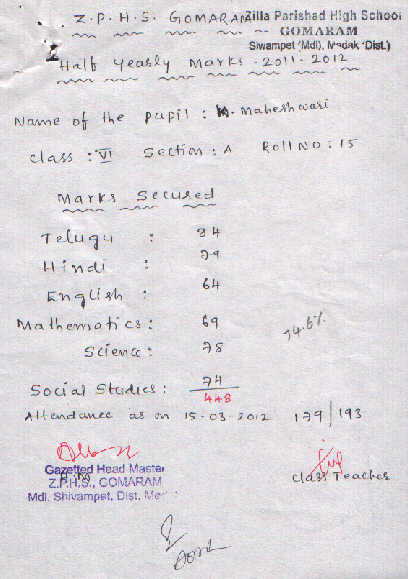 Z.P.H.S. GOMARAM
Zilla Parishad High School
GOMARAM
Siwampet (Mdl), Medak (Dist.)
Half Yearly Marks - 2011-2012
Name of the pupil : M. Maheshwari
class : VI Section : A Roll NO : 15
Marks Secured
Telugu : 84
Hindi : 79
English : 64
Mathematics : 69
74.6%
Science : 78
Social Studies : 74
448
Attendance as on 15-03-2012 179/193
Gazetted Head Master
H.M
Z.P.H.S., GOMARAM
Mdl. Shivampet, Dist. Medak
Class Teacher